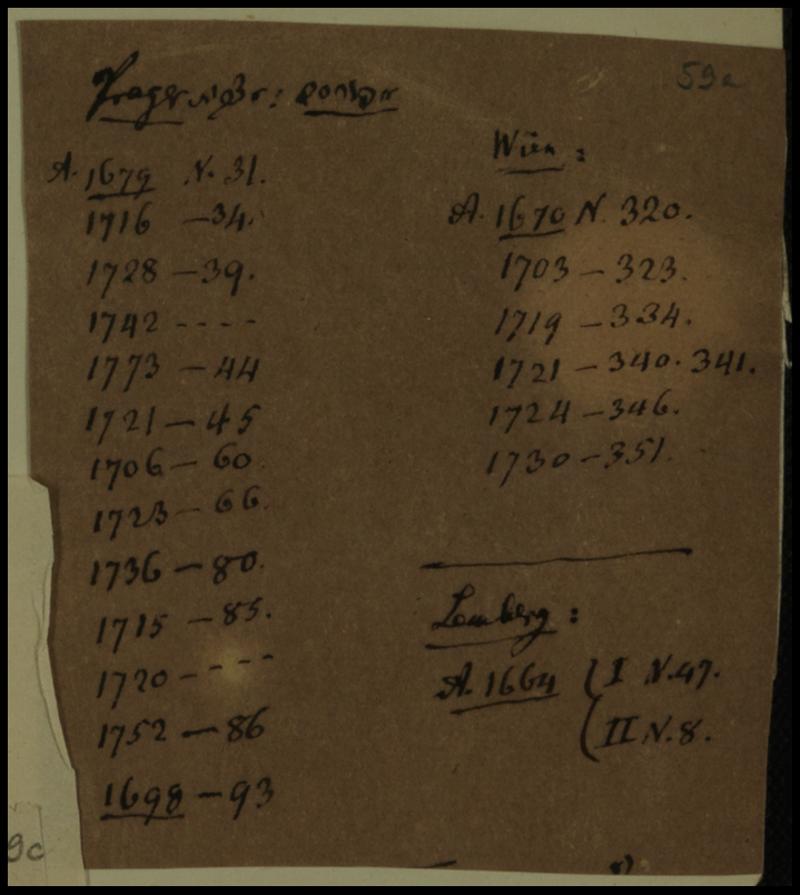 59a
Prager
A. 1679 N. 31.
1716 – 34.
1728 – 39.
1742 - - - -
1773 – 44
1721 – 45
1706 – 60
1723 – 66.
1736 – 80.
1715 – 85.
1720 - - - -
1752 – 86
1698 – 93
Wien :
A. 1670 N. 320.
1703 – 323.
1719 – 334.
1721 – 340. 341.
1724 – 346.
1730 – 351.
Lemberg :
A. 1664 { I N. 47.
II N. 8.
9c